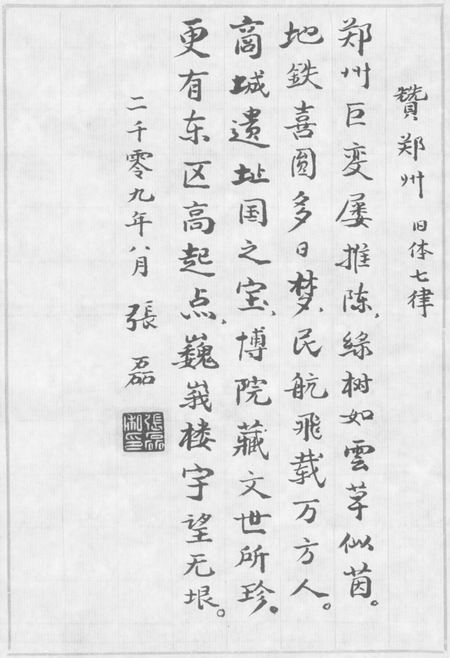 贊郑州 旧体七律
郑州巨变屡推陈、绿树如雲草似茵。
地鉄喜圆多日梦、民航飛载万方人。
商城遺址国之宝、博院藏文世所珍。
更有东区高起点、巍峩楼宇望无垠。
二千零九年八月 張磊
張磊私印